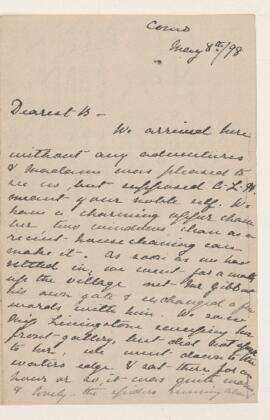 Como
May 8th/98
Dearest B -
We arrived here
without any adventures
& Madame was pleased to
see us, but supposed
meant your noble self. We
have a charming upper cham
ber, two windows, clean as a
recent housecleaning can
make it. As soon as we had
settled in, we went for a walk
up the village met Mr Gibb
his own gate & exchanged a few
words with him. We saw
Miss Livingston
front gallery, but did not speak
to her, we went down to the
waters edge & sat there for an
hour or so, it was quite warm
& lovely - the spiders running along